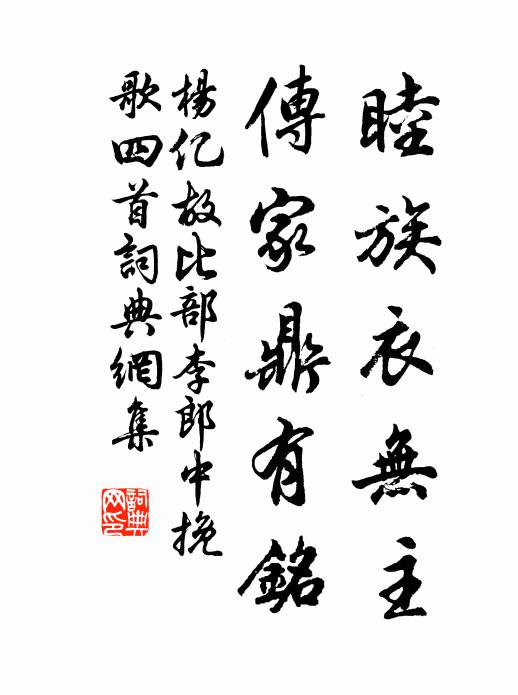 睦族衣無主
傳家鼎有銘
楊亿故比部李郎中挽
歌四首詞典網集
詞典网印